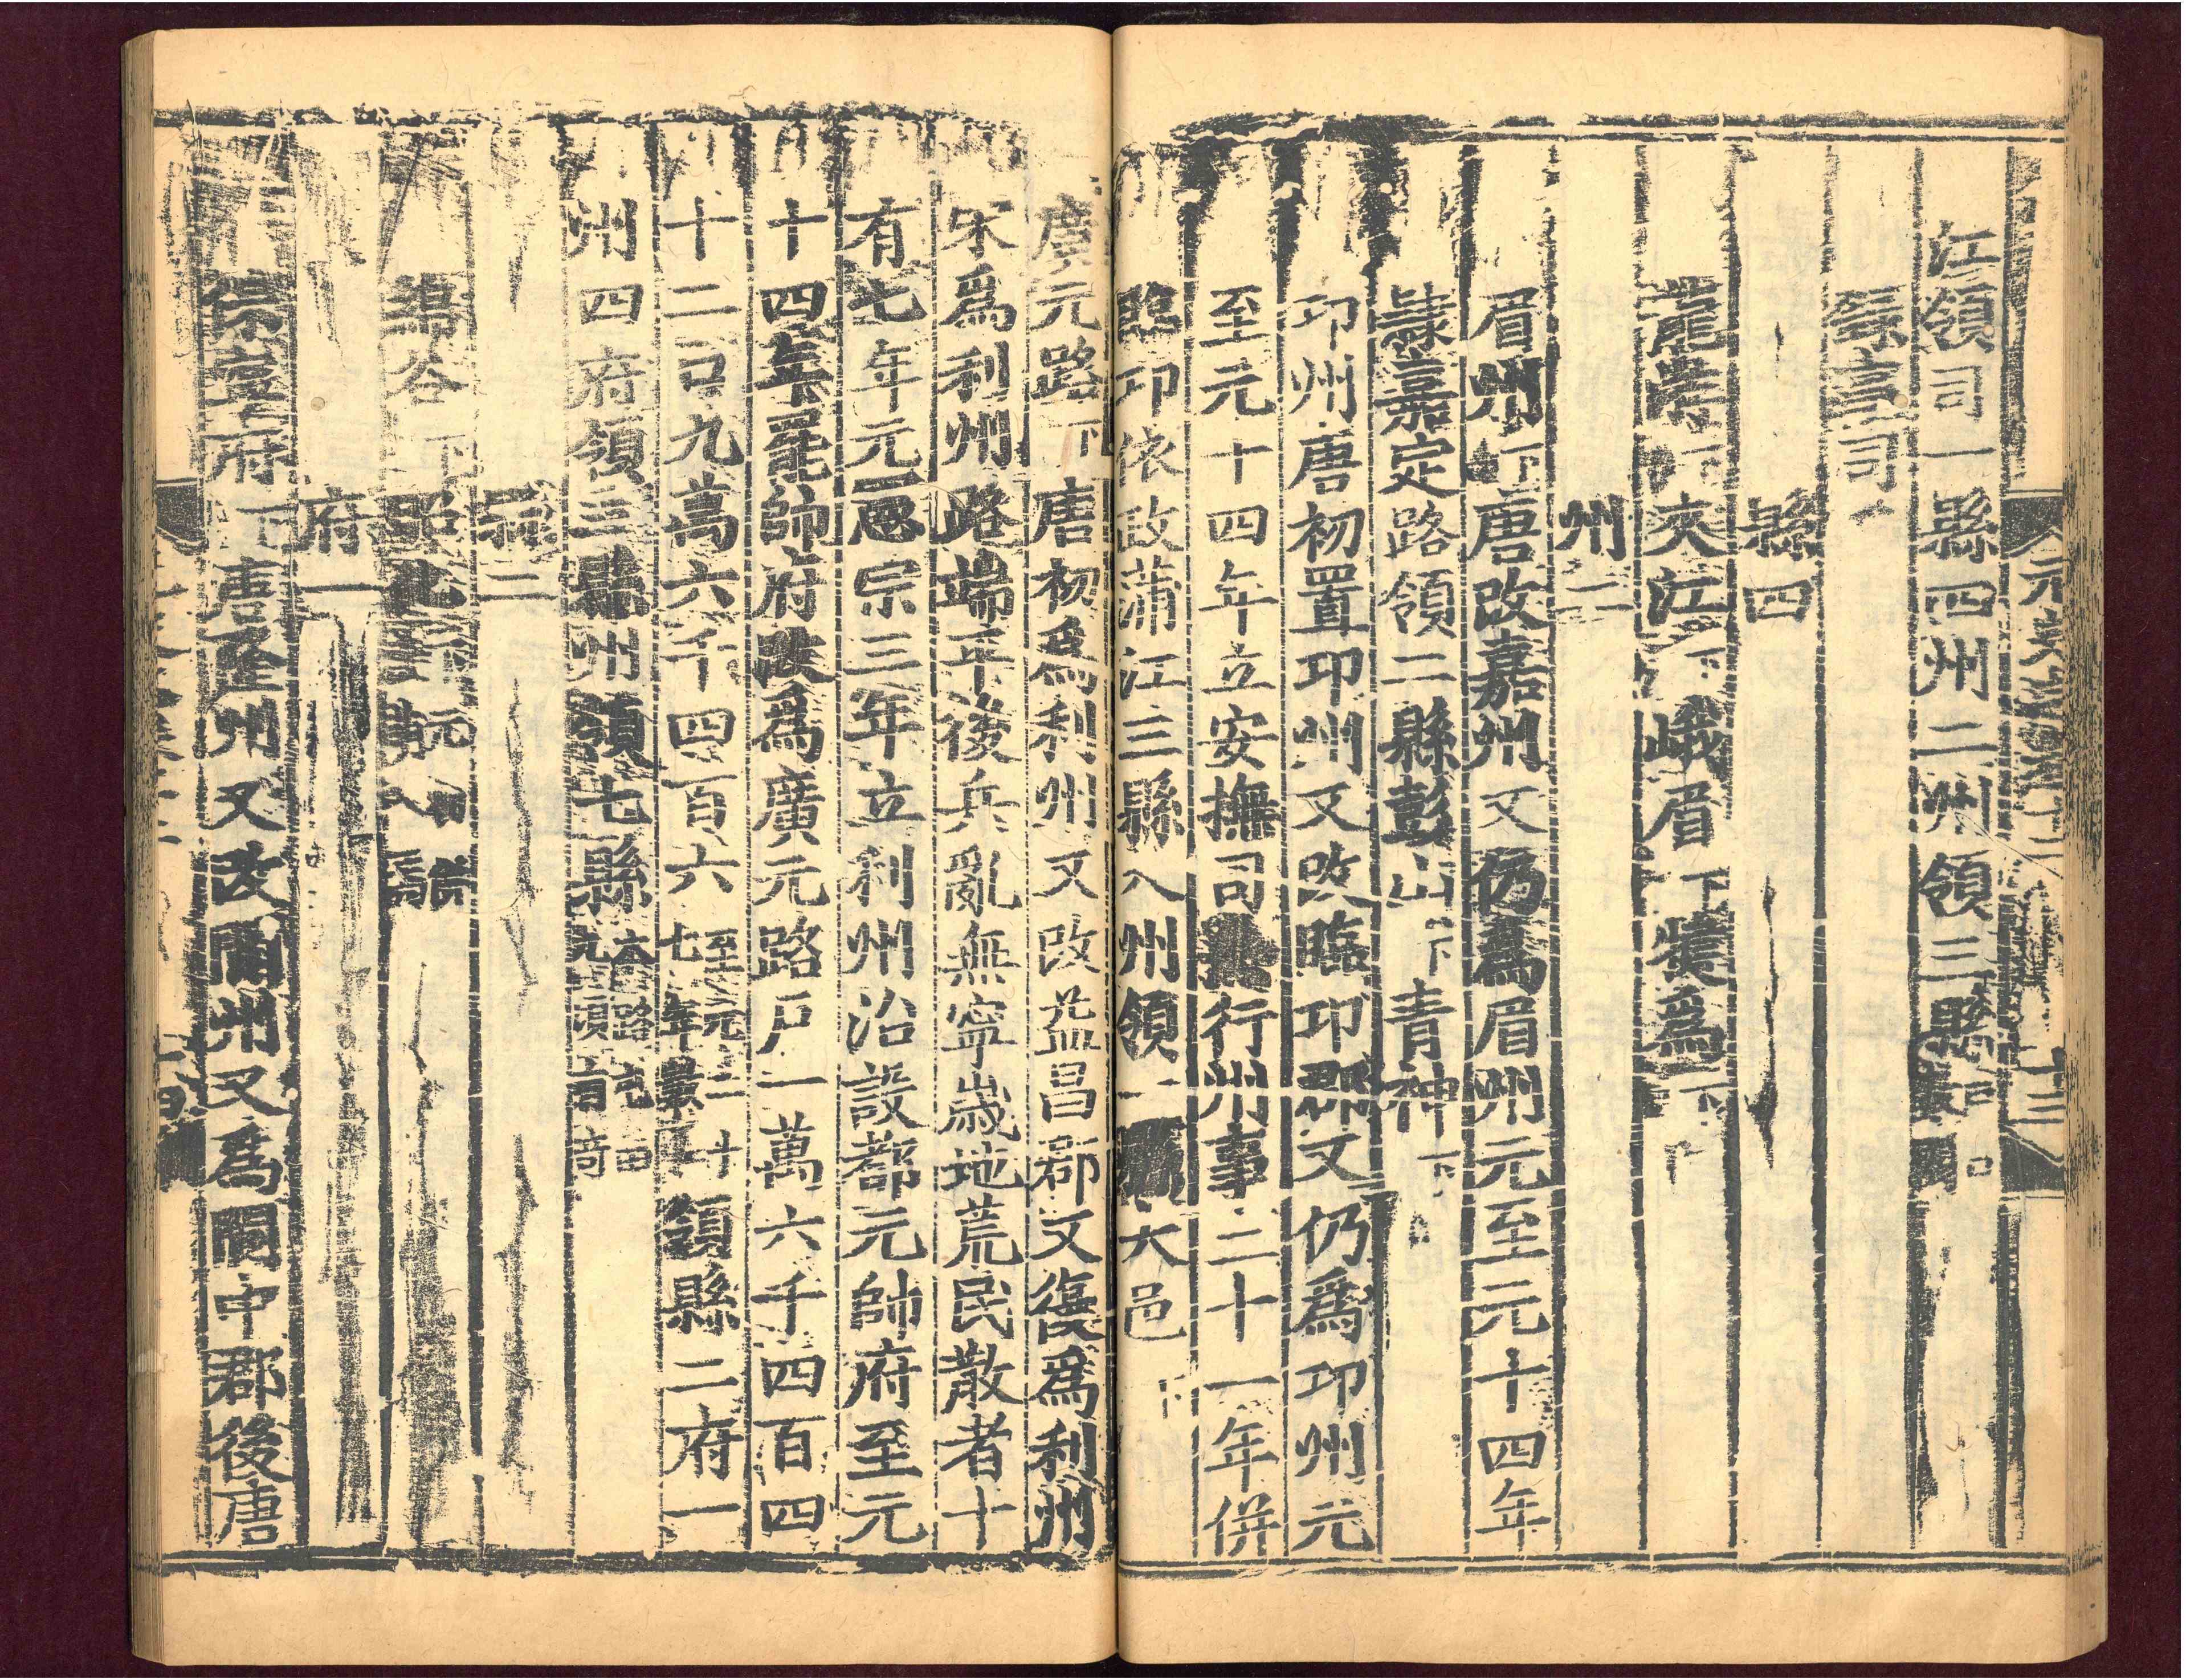 江領司一縣四州二州領三縣
錄事司
縣四
龍游下夾江下峨眉下犍為下
州二
眉州下唐改嘉州又仍為眉州元至元十四年
隸嘉定路領二縣彭山下青神下
邛州唐初置邛州又改臨邛郡又仍爲邛州元
至元十四年立安撫司行州事二十一年併
臨邛依政蒲江三縣入州領一大邑
廣元路下唐初爲利州又改益昌郡又復爲利州
宋爲利州路端平後兵亂無寧歲地荒民散者十
有七年元憲宗三年立利州治設都元帥府至元
十四年罷帥府改爲廣元路戶一萬六千四百四
十二口九萬六千四百六至元二十七年數領縣二府一
州四府領三縣州領七縣
縣二
綿谷下昭化
府一
保寧府下唐隆州又改閬州又爲閬中郡後唐